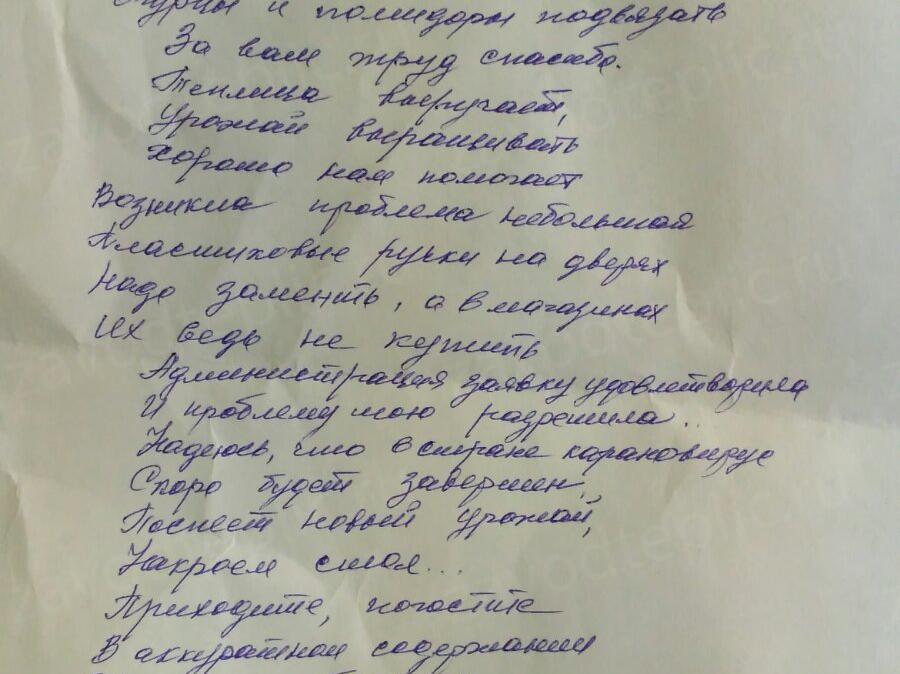 Огурцы и помидоры подвязать
За вам труд спасибо.
Теплица выручает,
Урожай выращивать
Хорошо нам помогает
Возникла проблема небольшая
Пластиковые ручки на дверях
Надо заменить, а в магазинах
Их ведь не купить
Администрация заявку удовлетворила
И проблему мою разрешила..
Надеюсь, что в стране карановирус
Скоро будет завершен,
Поспеет новый урожай,
Накроем стол...
Приходите, погостите
В аккуратном содержании